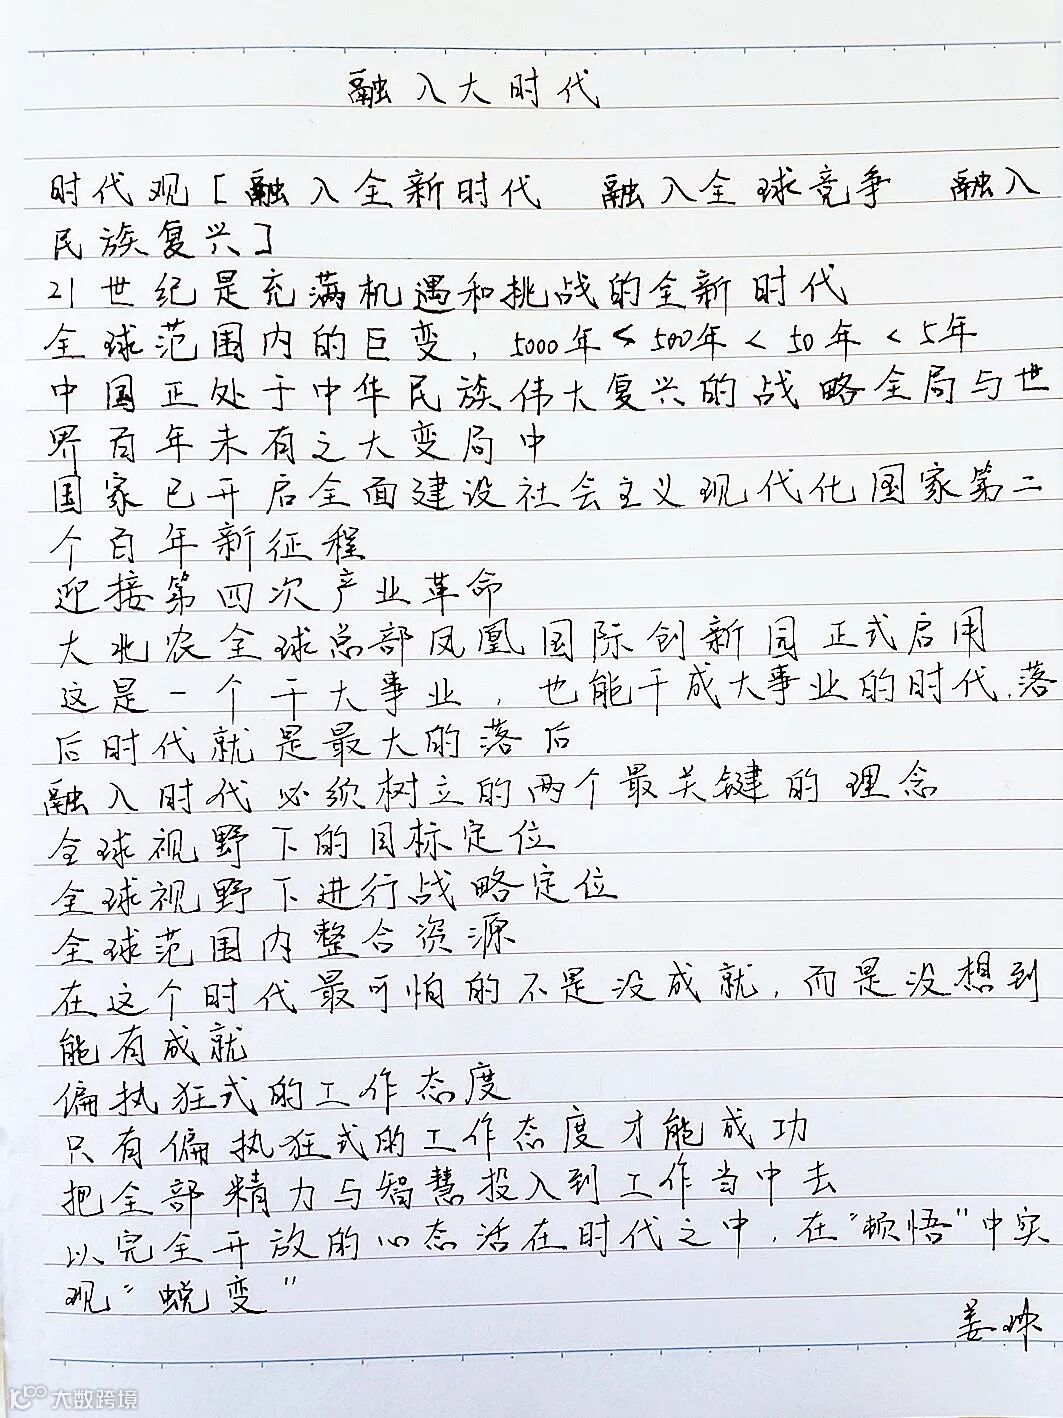 融入大时代
时代观[融入全新时代 融入全球竞争 融入
民族复兴]
21世纪是充满机遇和挑战的全新时代
全球范围内的巨变，5000年<500年<50年<5年
中国正处于中华民族伟大复兴的战略全局与世
界百年未有之大变局中
国家已开启全面建设社会主义现代化国家第二
个百年新征程
迎接第四次产业革命
大北农全球总部凤凰国际创新园正式启用
这是一个干大事业，也能干成大事业的时代，落
后时代就是最大的落后
融入时代必须树立的两个最关键的理念
全球视野下的目标定位
全球视野下进行战略定位
全球范围内整合资源
在这个时代最可怕的不是没成就，而是没想到
能有成就
偏执狂式的工作态度
只有偏执狂式的工作态度才能成功
把全部精力与智慧投入到工作当中去
以完全开放的心态活在时代之中，在"顿悟"中实
现"蜕变"
姜
大数跨境